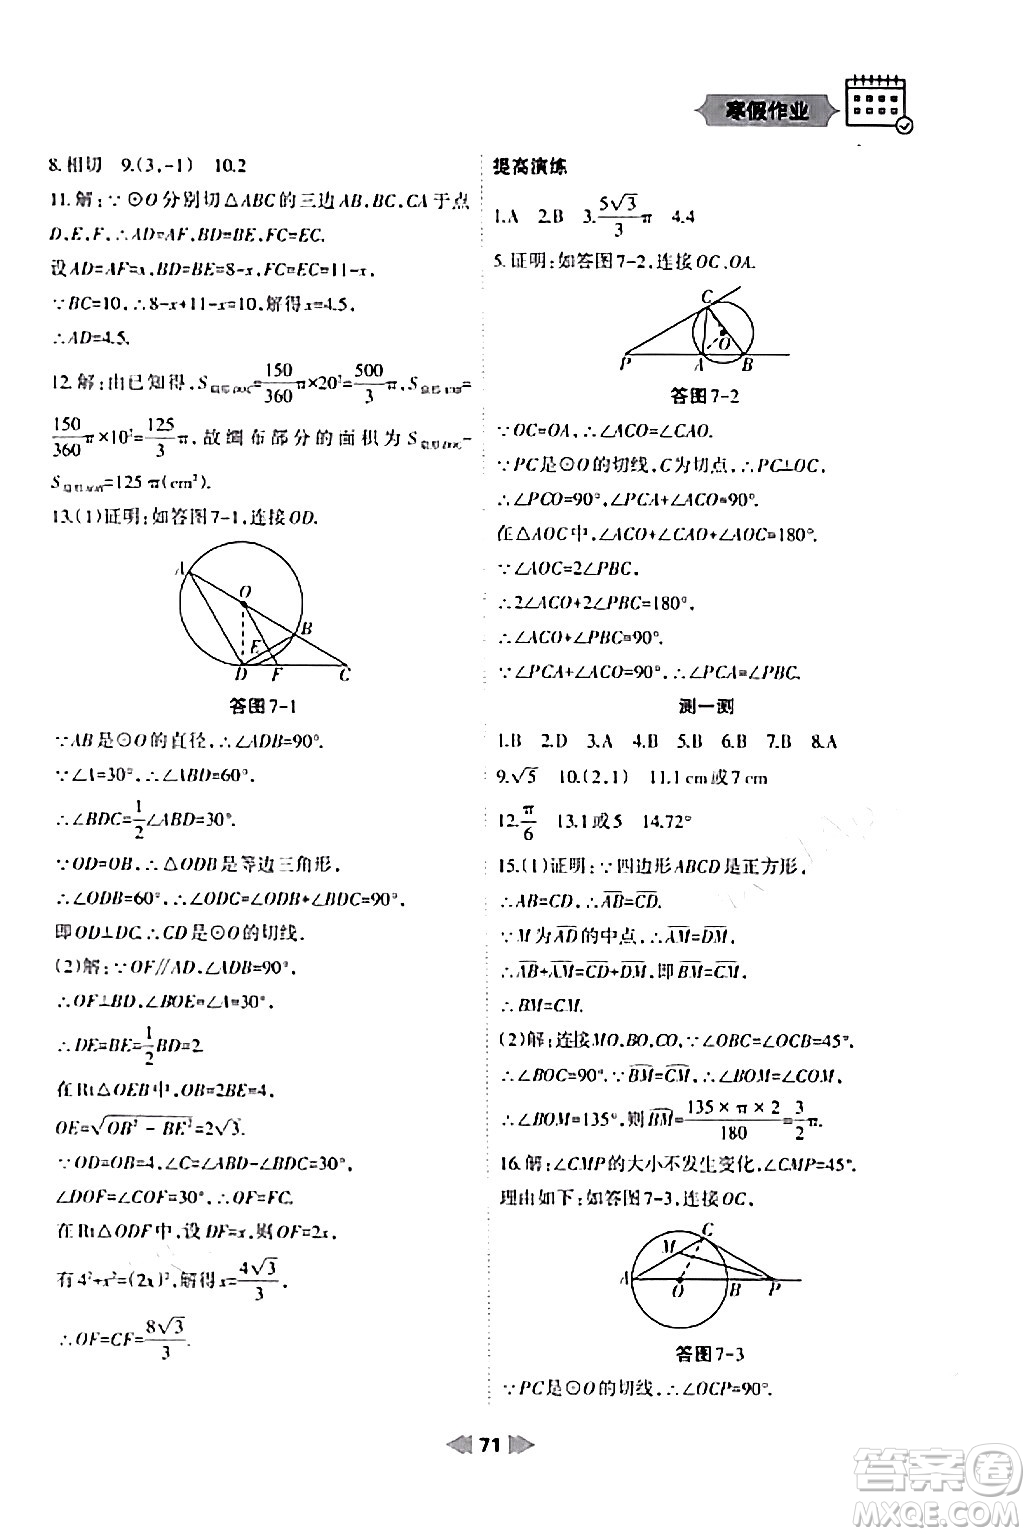 寒假作业
8.相切 9.(3,-1) 10.2
11.解:∵⊙O分别切△ABC的三边AB,BC,CA于点
D,E,F,∴AD=AF,BD=BE,FC=EC.
设AD=AF=x,BD=BE=8-x,EC=FC=11-x.
∵BC=10,∴8-x+11-x=10,解得x=4.5.
∴AD=4.5.
12.解:由已知得,S扇形BOC=150/360π×20²=500/3π,S
=
150/360π×10²=125/3π,故绸布部分的面积为S扇形BOC-
S
=125π(cm²).
13.(1)证明:如答图7-1,连接OD.
A
O
B
E
D F C
答图7-1
∵AB是⊙O的直径,∴∠ADB=90°.
∵∠A=30°,∴∠ABD=60°.
∴∠BDC=1/2∠ABD=30°.
∵OD=OB,∴△ODB是等边三角形,
∴∠ODB=60°,∴∠ODC=∠ODB+∠BDC=90°,
即OD⊥DC.∴CD是⊙O的切线.
(2)解:∵OF∥AD,∠ADB=90°,
∴OF⊥BD,∠BOE=∠A=30°.
∴DE=BE=1/2BD=2.
在Rt△OEB中,OB=2BE=4,
OE=√(OB²-BE²)=2√3.
∵OD=OB=4,∠C=∠ABD-∠BDC=30°,
∠DOF=∠COF=30°,∴OF=FC.
在Rt△ODF中,设DF=x,则OF=2x.
有4²+x²=(2x)²,解得x=4√3/3.
∴OF=CF=8√3/3.
提高演练
1.A 2.B 3.5√3/3π 4.4
5.证明:如答图7-2,连接OC,OA.
C
O
P A B
答图7-2
∵OC=OA,∴∠ACO=∠CAO.
∵PC是⊙O的切线,C为切点,∴PC⊥OC,
∴∠PCO=90°,∠PCA+∠ACO=90°.
在△AOC中,∠ACO+∠CAO+∠AOC=180°.
∵∠AOC=2∠PBC.
∴2∠ACO+2∠PBC=180°,
∴∠ACO+∠PBC=90°.
∵∠PCA+∠ACO=90°,∴∠PCA=∠PBC.
测一测
1.B 2.D 3.A 4.B 5.B 6.B 7.B 8.A
9.√5 10.(2,1) 11.1 cm或7 cm
12.π/6 13.1或5 14.72°
15.(1)证明:∵四边形ABCD是正方形,
∴AB=CD,∴AB=CD.
∵M为AD的中点,∴AM=DM.
∴AB+AM=CD+DM,即BM=CM.
∴BM=CM.
(2)解:连接MO,BO,CO,∵∠OBC=∠OCB=45°,
∴∠BOC=90°.∵BM=CM,∴∠BOM=∠COM.
∴∠BOM=135°,则BM=135×π×2/180=3/2π.
16.解:∠CMP的大小不发生变化,∠CMP=45°.
理由如下:如答图7-3,连接OC,
C
M
A O B P
答图7-3
∵PC是⊙O的切线,∴∠OCP=90°.
71
答案圈
MXQE.COM